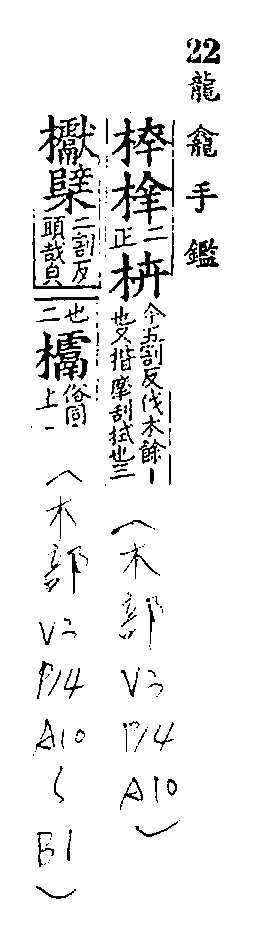 22 龍龕手鑑
椊㭮二正枿今五割反伐木餘丨也又揩摩刮拭也三
(木部 V3 P14 A10)
𣡌櫱二割反頭哉皃也二𣚃俗同上一
(木部 V3 P14 A10 ~ B1)